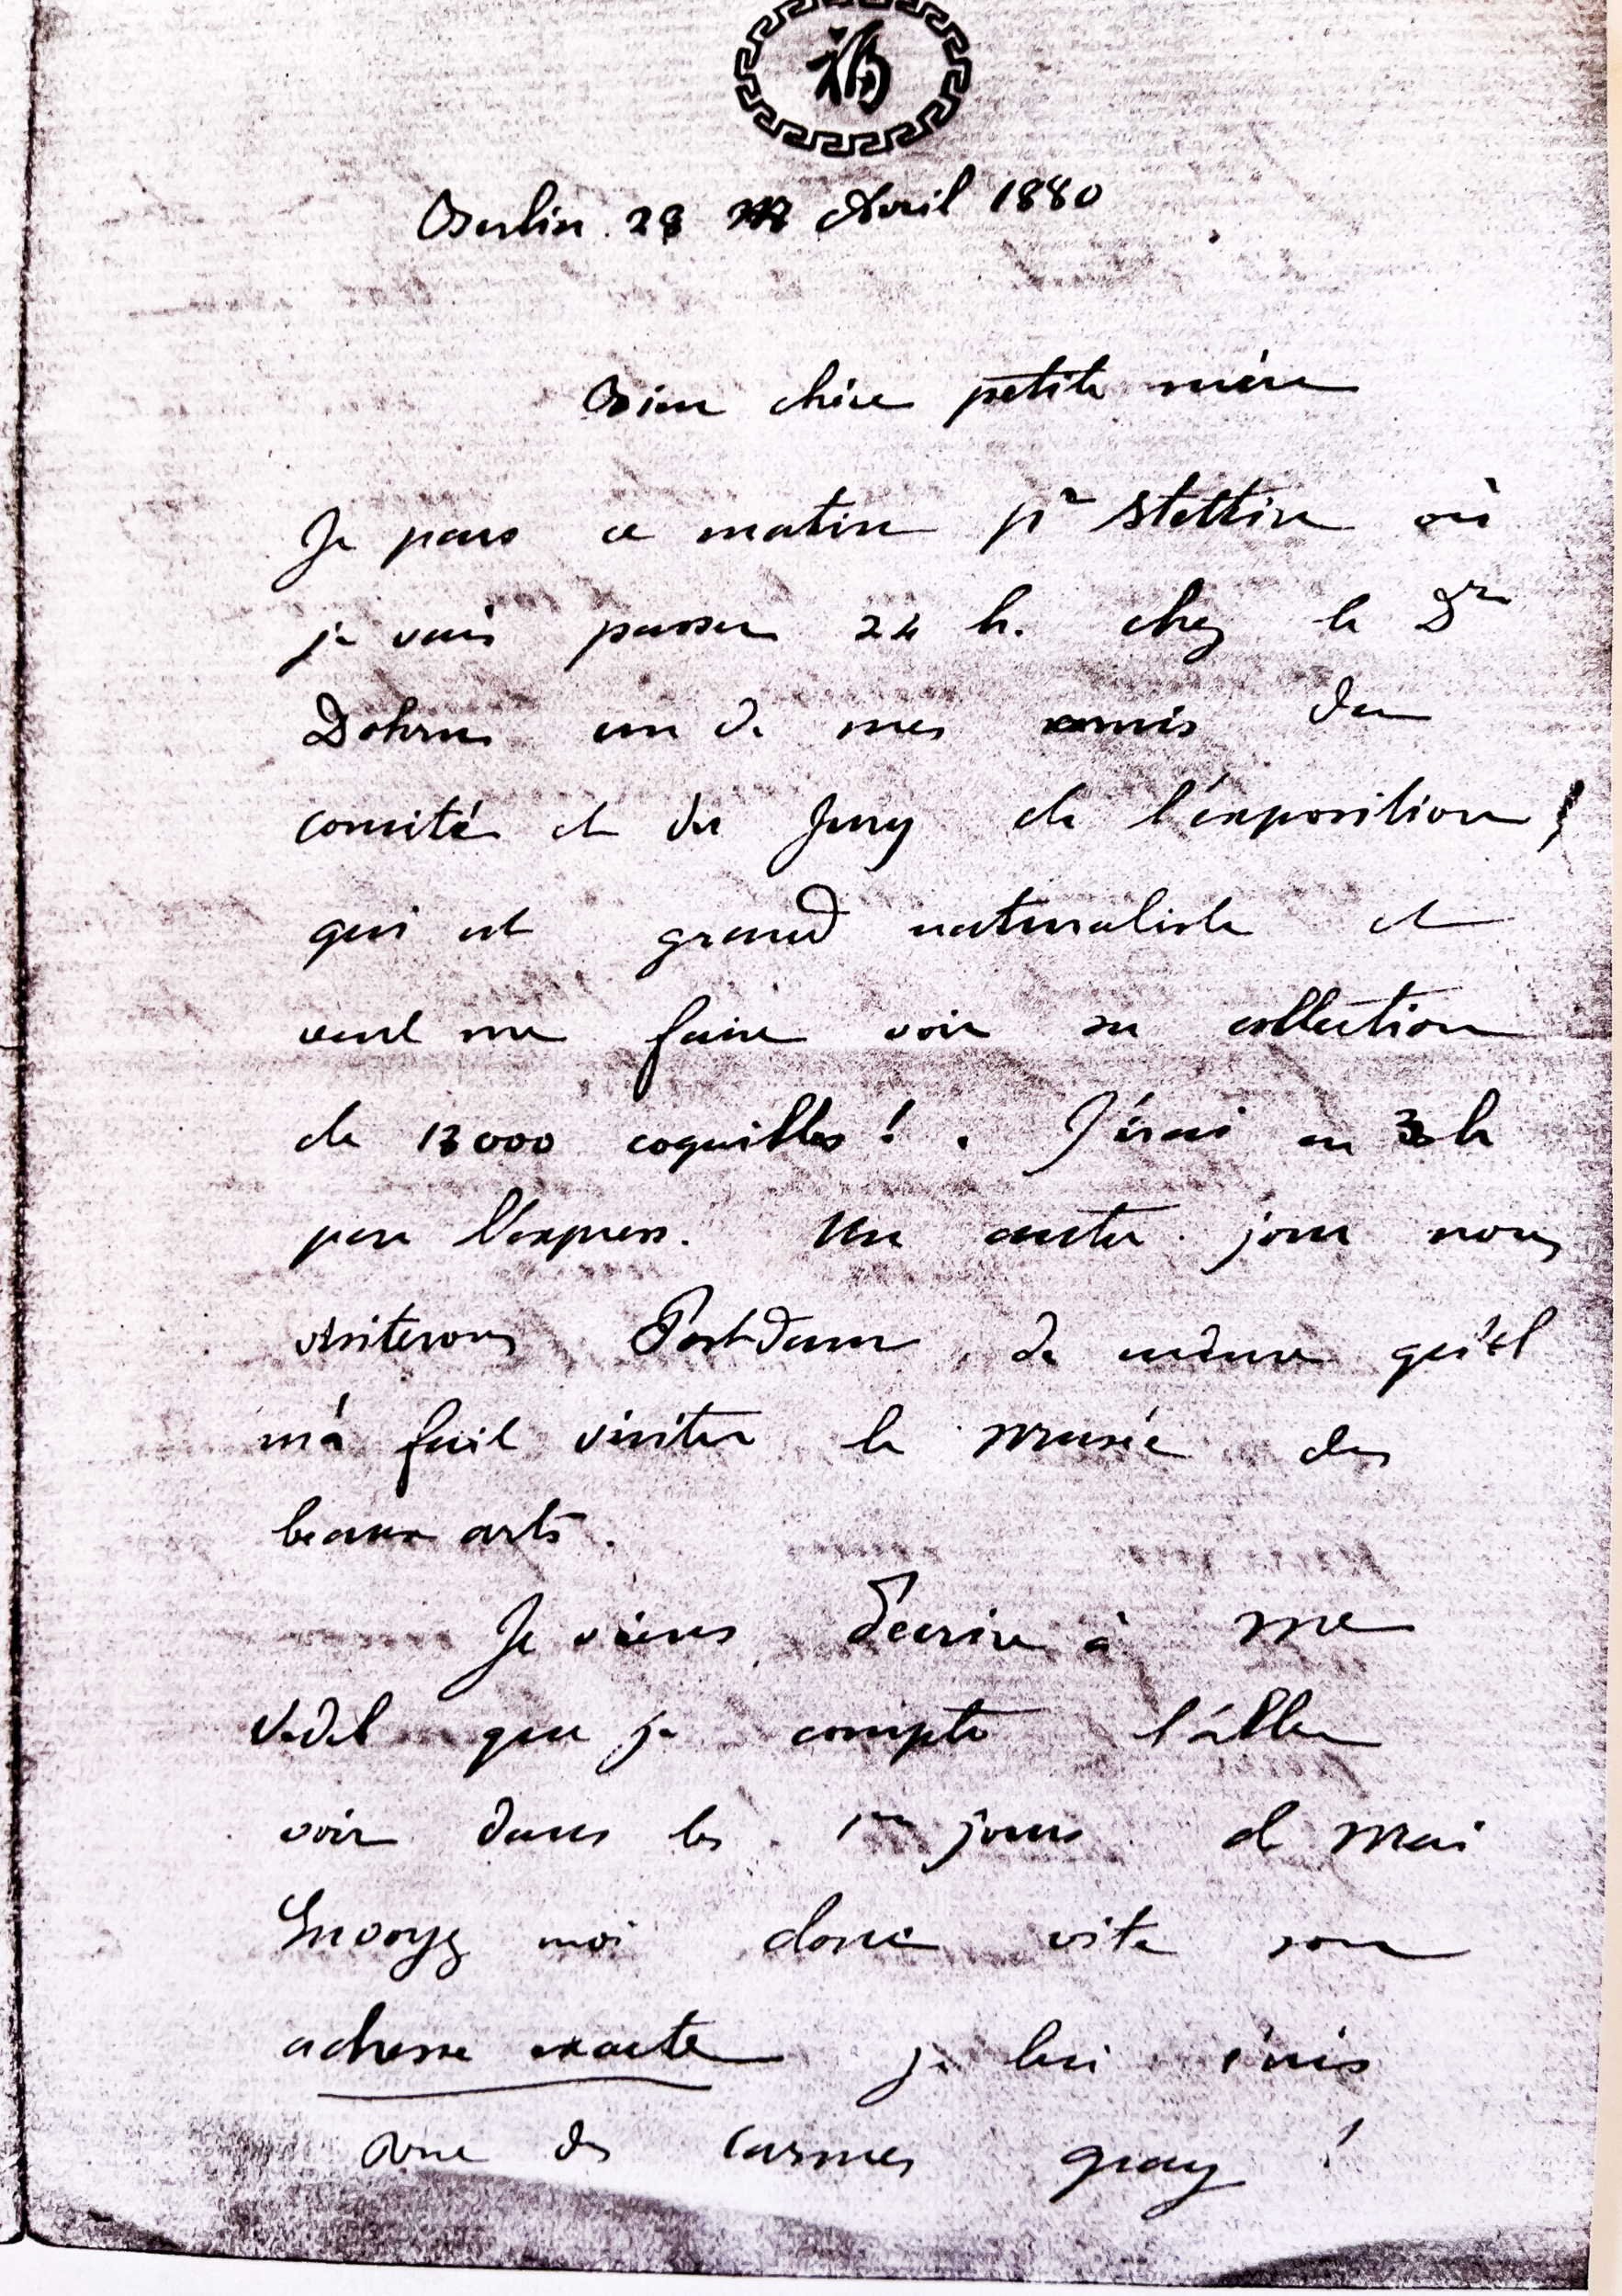 福
Berlin 28 Avril 1880
Bien chère petite mère
Je pars ce matin pr Stettin où
je vais passer 24 h. chez le Dr
Dohrn un de mes amis du
comité et du Jury de l'exposition
qui est grand naturaliste et
veut me faire voir sa collection
de 13000 coquilles ! . J'irai en 3 h
par l'express. Un autre jour nous
visiterons Postdam de même qu'il
m'a fait visiter le Musée des
beaux arts.
Je viens d'écrire à Me
Vedel que je compte l'aller
voir dans les 1rs jours de Mai
Envoyez moi donc vite son
adresse exacte je lui écris
rue des Carmes Gray !